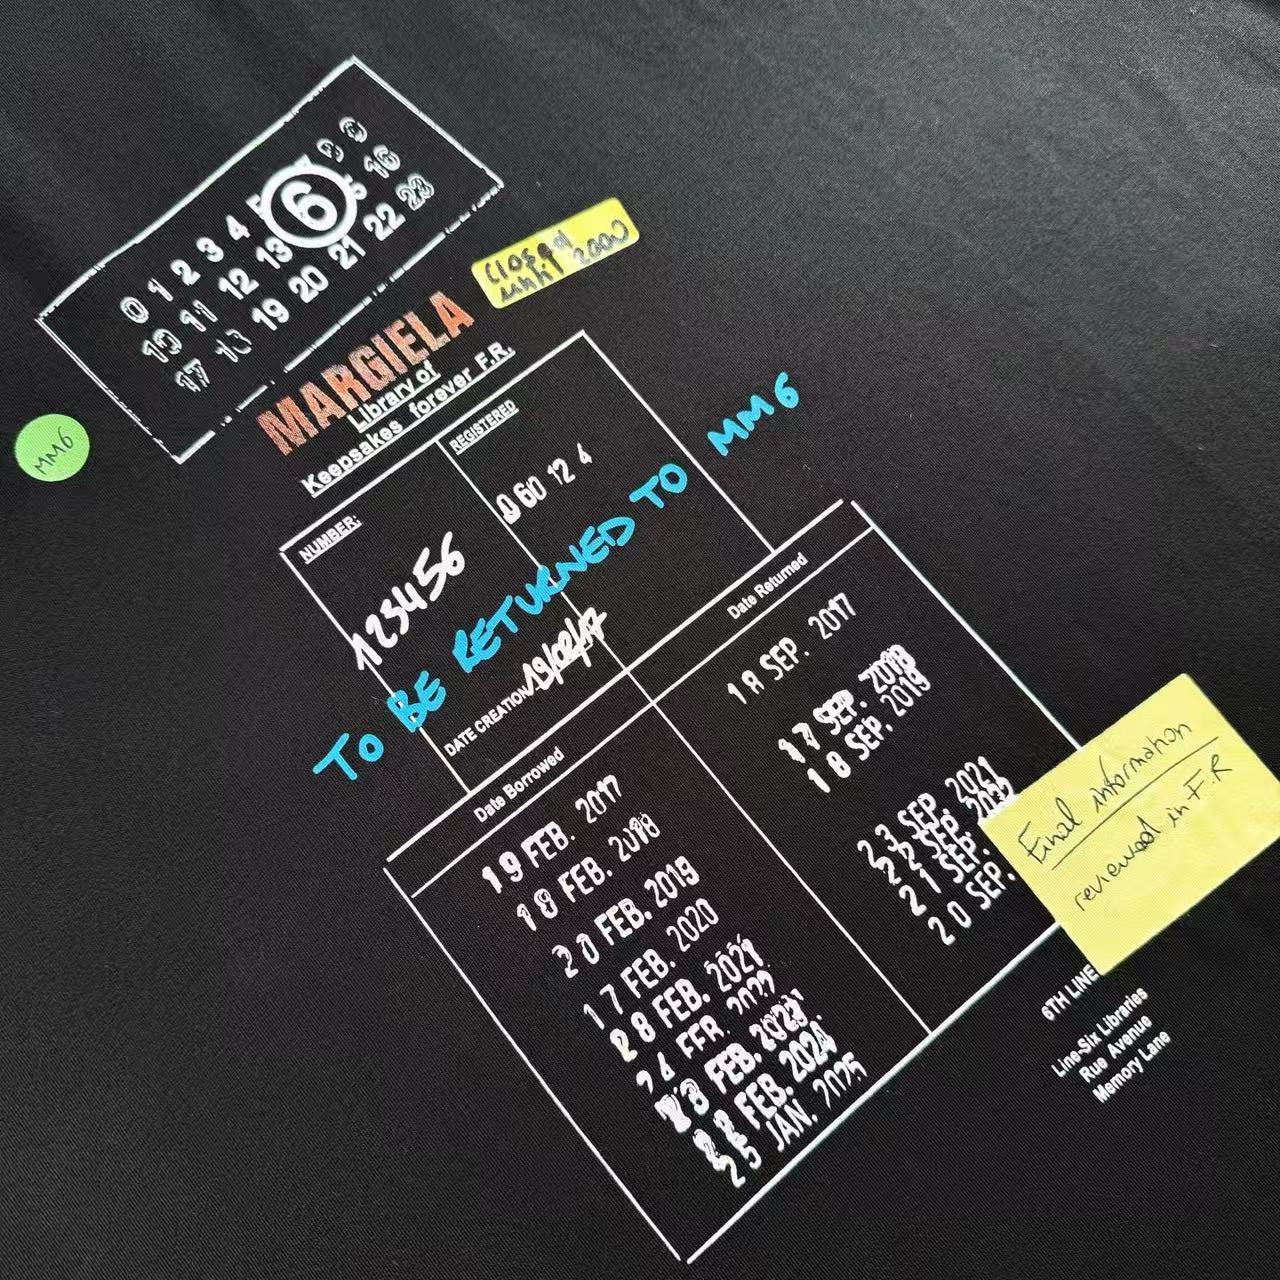 0 1 2 3 4 6
10 11 12 13 16
17 18 19 20 21 22 23
MM6
MARGIELA
Library of
Keepsakes forever F.R.
Closed
2000
NUMBER:
123456
REGISTERED
060 12 4
TO BE RETURNED TO MM6
DATE CREATION 19/02/17
Date Borrowed
19 FEB. 2017
18 FEB. 2018
20 FEB. 2019
17 FEB. 2020
28 FEB. 2021
FEB. 2023
22 FEB. 2024
25 JAN. 2025
Date Returned
18 SEP. 2017
17 SEP. 2018
18 SEP. 2019
23 SEP. 2021
22 SEP. 2022
21 SEP.
20 SEP.
Final information
reviewed in F.R
6TH LINE
Line-Six Libraries
Rue Avenue
Memory Lane